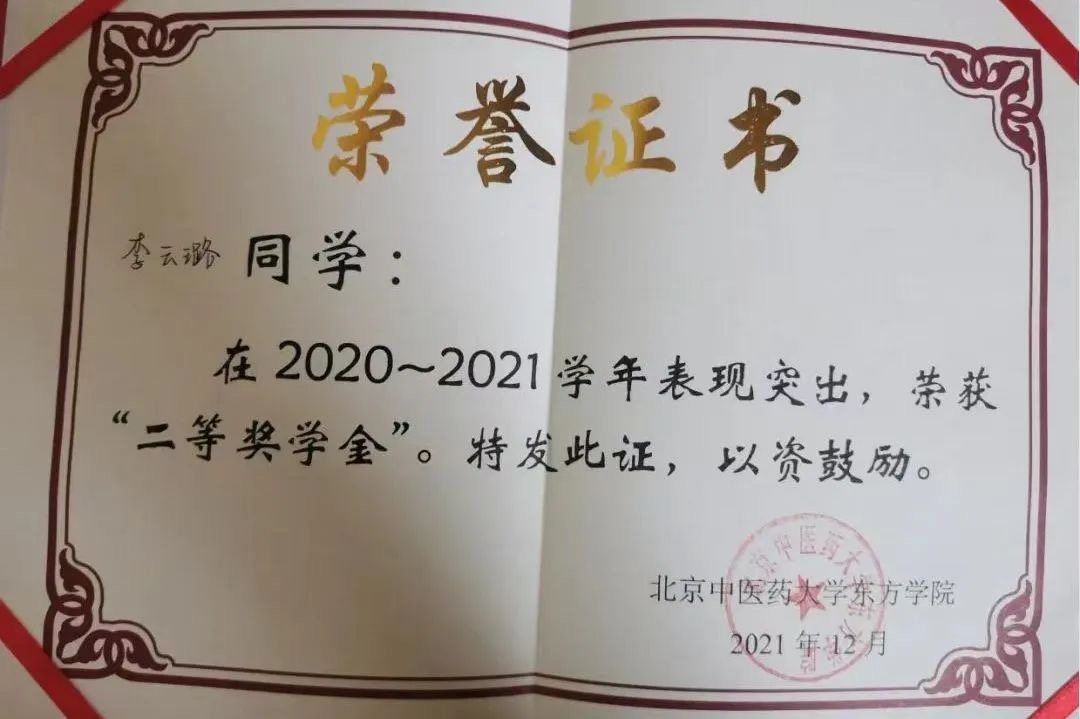 荣誉证书
李云璐 同学：
在 2020～2021 学年表现突出，荣获
“二等奖学金”。特发此证，以资鼓励。
北京中医药大学东方学院
2021 年 12 月
北京中医药大学东方学院